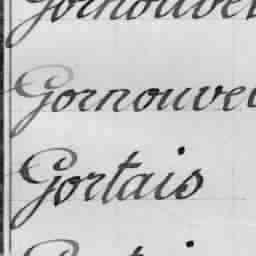 Gornouvel
Gornouvel
Gortais